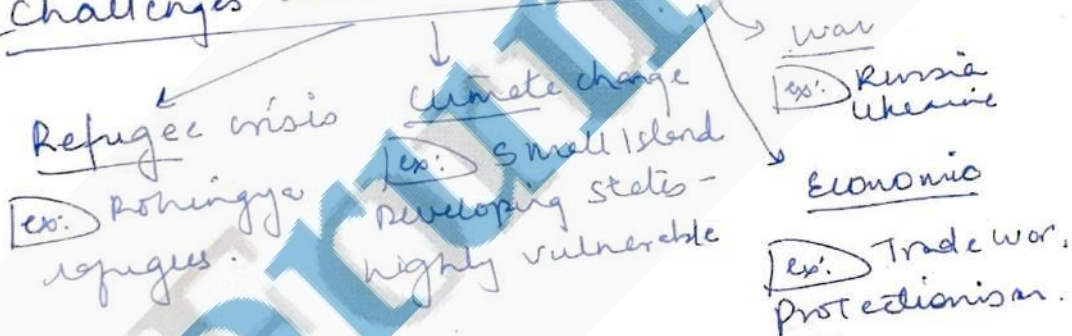 Challenges
Refugee crisis
ex: Rohingya
refugees.
Climate change
ex: Small Island
Developing States -
highly vulnerable
war
ex: Russia
Ukraine
Economic
ex: Trade war,
Protectionism.